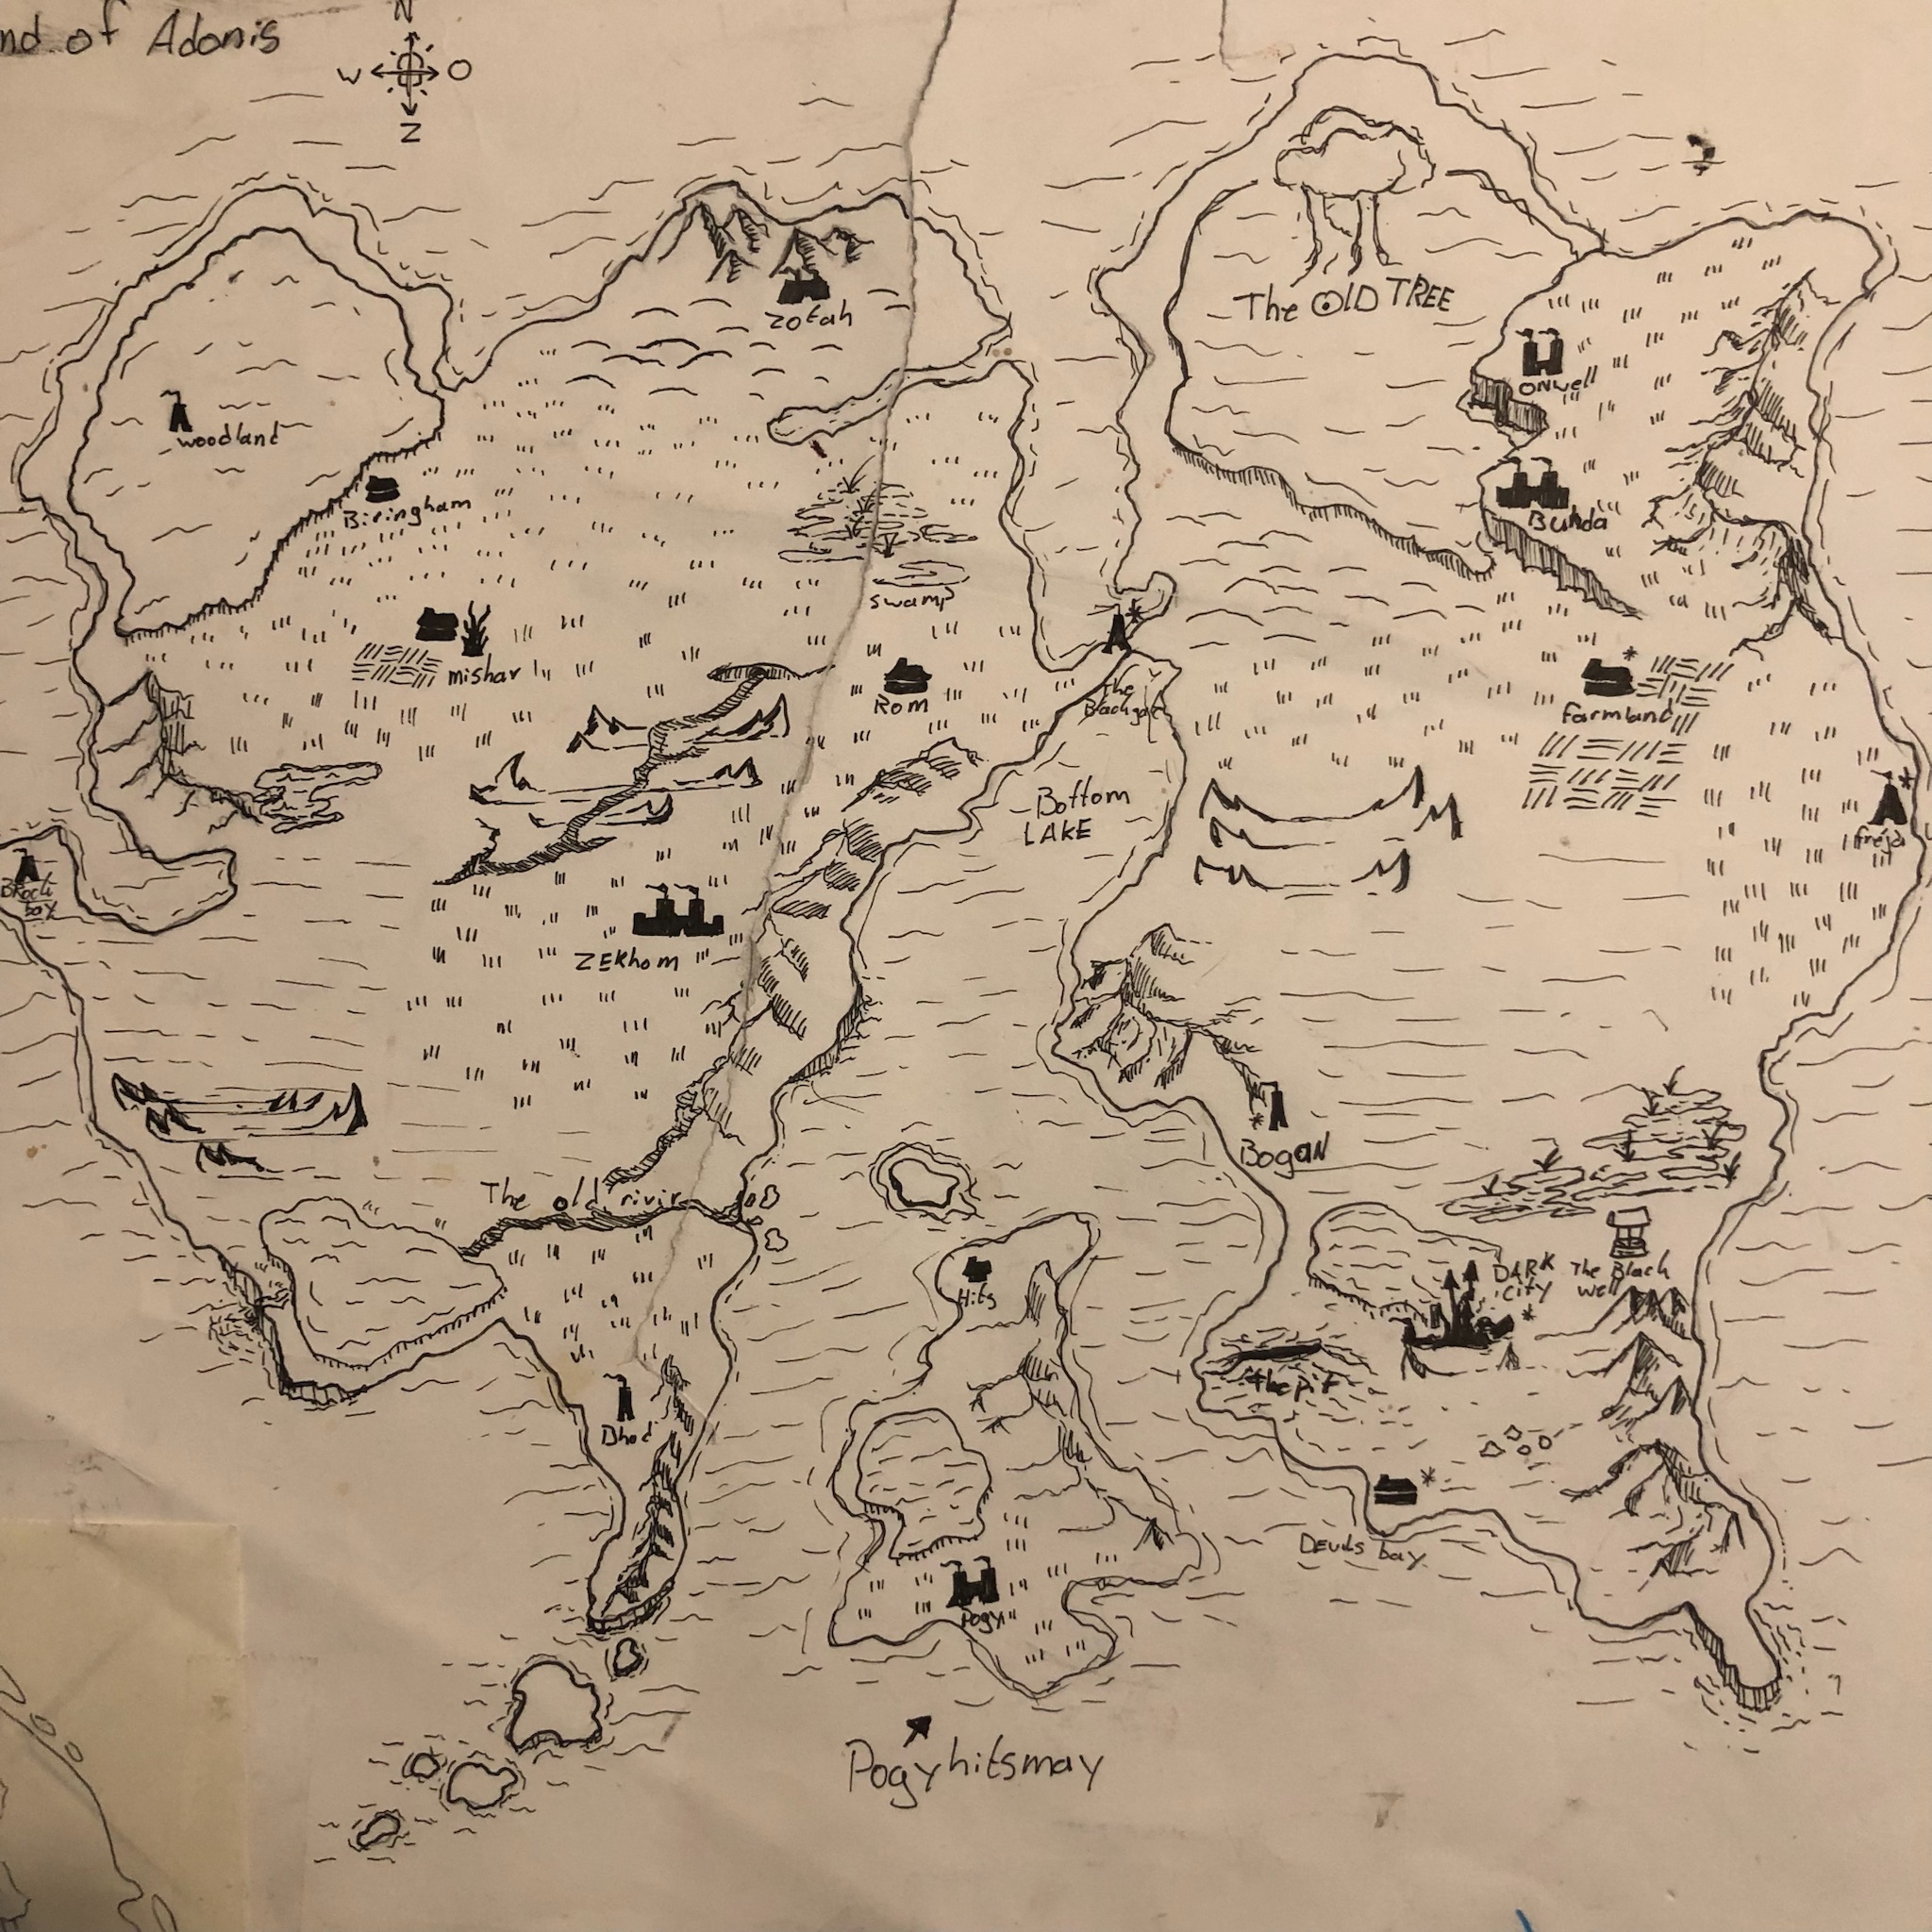 nd of Adonis
N
W O
Z
Zotah
The OLD TREE
Woodland
ONWELL
Biringham
Buhda
swamp
mishar
Rom
The
Blackgate
Farmland
Bottom
LAKE
freja
Black
bay
ZEKhom
BogaN
The old rivir
DARK
City
The Black
Well
Hits
the pit
Dhod
Devils bay
Pogy
Pogyhitsmay